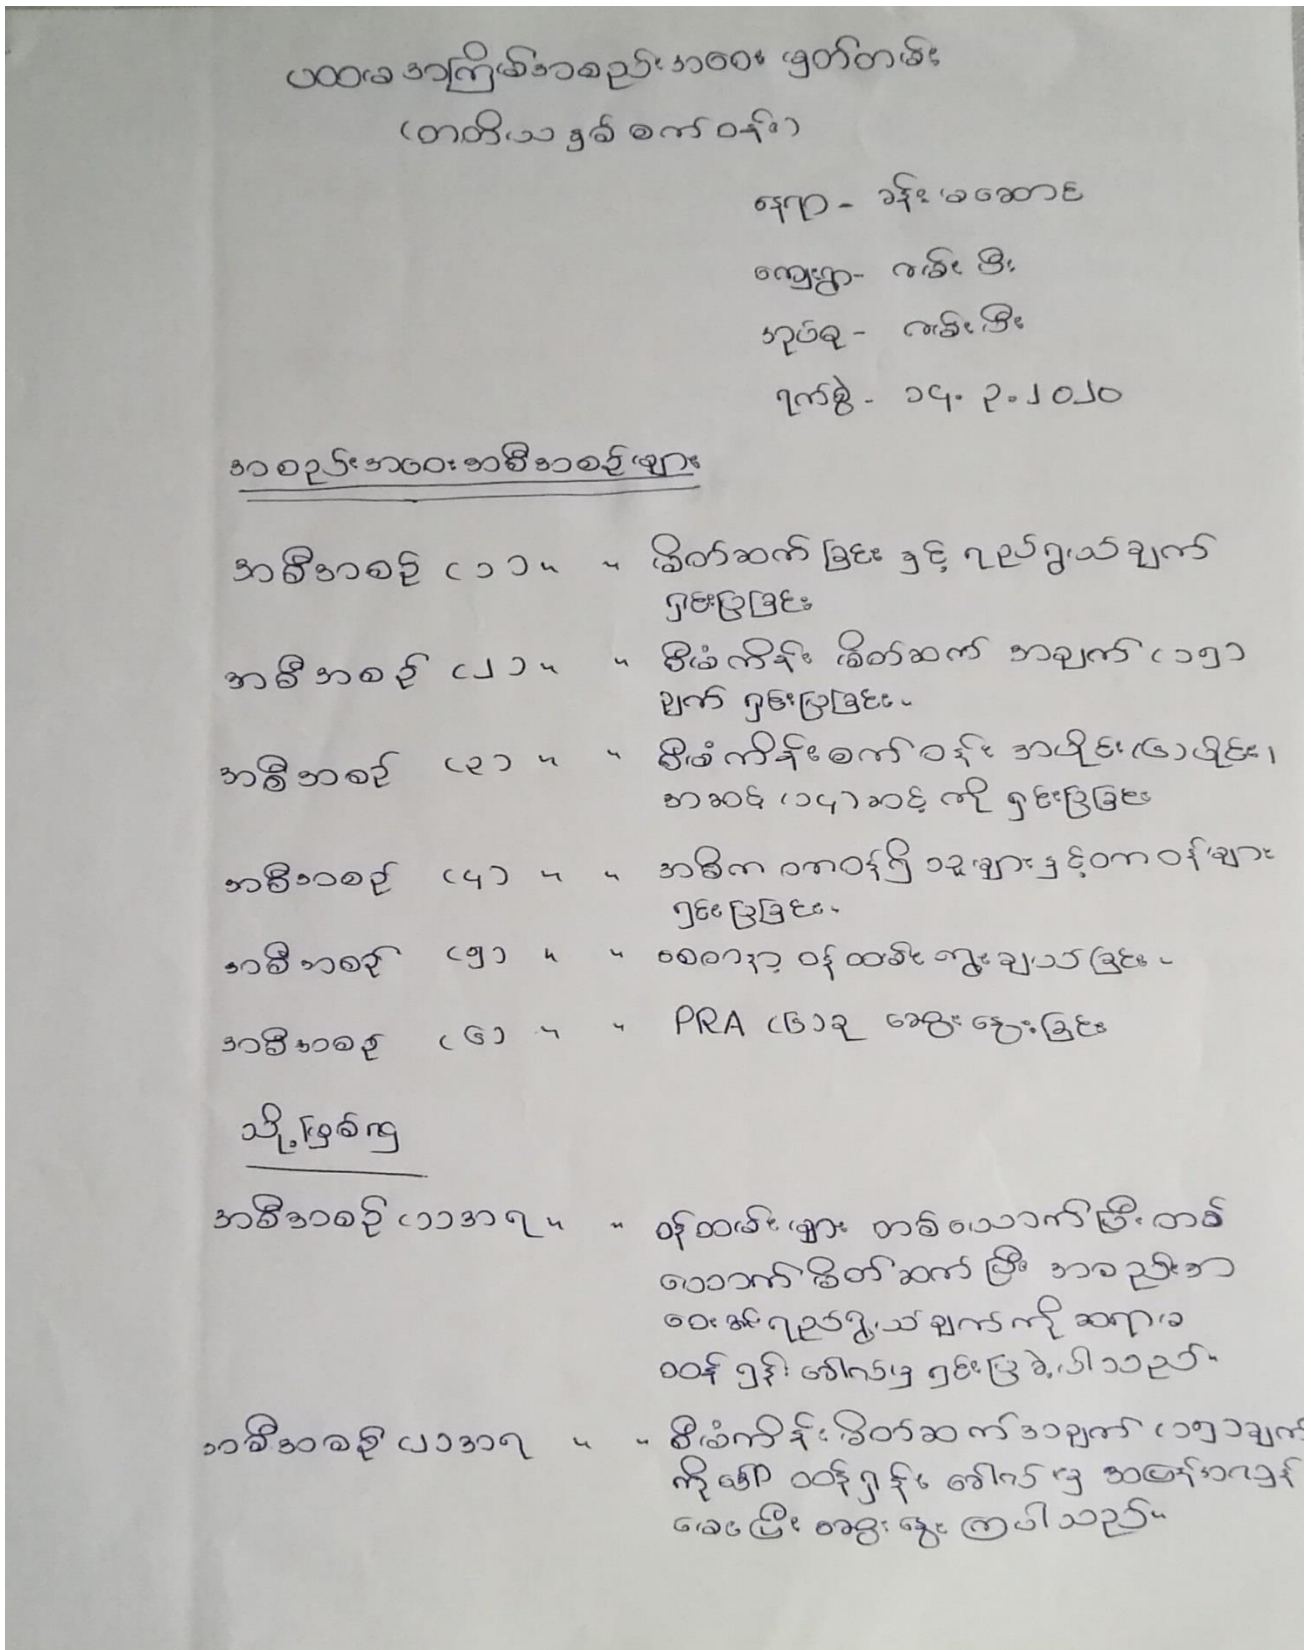 ပထမအကြိမ်အစည်းအဝေး မှတ်တမ်း
(တတိယနှစ် စက်ဝန်း)
နေရာ - ခန်းမဆောင်
ကျေးရွာ - လမ်းဦး
အုပ်စု - လမ်းဦး
ရက်စွဲ - ၁၄.၃.၂၀၂၀
အစည်းအဝေးအစီအစဉ်များ
အစီအစဉ် (၁) ။ ။ မိတ်ဆက်ခြင်း နှင့် ရည်ရွယ်ချက်
ရှင်းပြခြင်း
အစီအစဉ် (၂) ။ ။ စီမံကိန်း မိတ်ဆက် အချက် (၁၅)
ချက် ရှင်းပြခြင်း။
အစီအစဉ် (၃) ။ ။ စီမံကိန်းစက်ဝန်း အပိုင်း(၆)ပိုင်း၊
အဆင့် (၁၄)ဆင့် ကို ရှင်းပြခြင်း
အစီအစဉ် (၄) ။ ။ အဓိက တာဝန်ရှိသူများနှင့်တာဝန်များ
ရှင်းပြခြင်း။
အစီအစဉ် (၅) ။ ။ စေတနာ့ ဝန်ထမ်း ရွေးချယ်ခြင်း။
အစီအစဉ် (၆) ။ ။ PRA (၆)ခု ဆွေးနွေးခြင်း
သို့ဖြစ်၍
အစီအစဉ် (၁)အရ ။ ။ ဝန်ထမ်းများ တစ်ယောက်ပြီးတစ်
ယောက်မိတ်ဆက်ပြီး အစည်းအ
ဝေး ရည်ရွယ်ချက်ကို ဆရာမ
ရှင်းပြခဲ့ပါသည်။
အစီအစဉ် (၂)အရ ။ ။ စီမံကိန်းမိတ်ဆက်အချက် (၁၅)ချက်
ကို အပြန်အလှန်
မေးပြီး ဆွေးနွေးကြပါသည်။